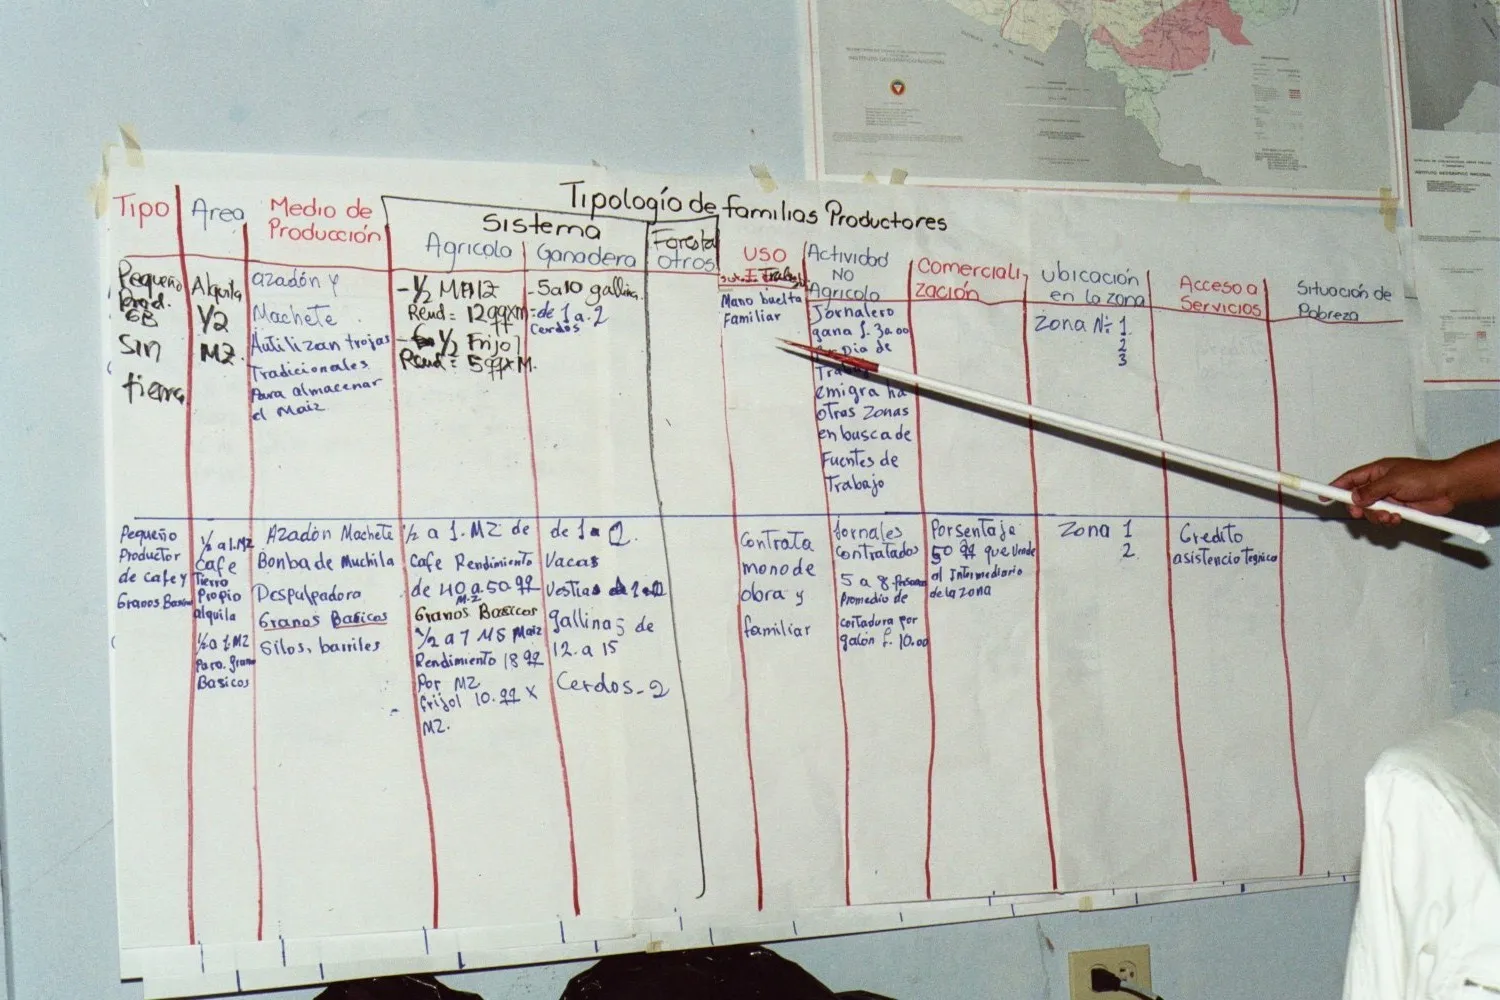 Tipología de familias Productores
Tipo
Area
Medio de
Producción
Sistema
Agricolo
Ganadera
Foresta
otros
USO
Actividad
NO
Agricolo
Comerciali,
zación
ubicación
en la zona
Acceso a
Servicios
Situación de
Pobreza
Pequeño
Prod.
GB
Sin
tierra
Alquila
1/2
MZ.
azadón y
Machete
Autilizan trojas
Tradicionales
Para almacenar
el Maiz
- 1/2 MAIZ
Rend = 12qqxm
1/2 Frijol
Rend = 5qqxM.
- 5a10 gallina.
de 1 a. 2
Cerdos
Mano buelta
Familiar
Jornalero
gana L. 30.00
Dia de
Trab
emigra ha
otras zonas
en busca de
Fuentes de
Trabajo
Zona Nº 1
2
3
Pequeño
Productor
de cafe y
Granos Basico
1/2 a 1.MZ
cafe
Tierra
Propio
alquila
1/2 a 1.MZ
Para. grano
Basicos
Azadón Machete
Bonba de Muchila
Despulpadora
Granos Basicos
Silos, barriles
1/2 a 1. MZ de
Cafe Rendimiento
de 40 a 50 qq
M-Z
Granos Basicos
1/2 a 7 MS Maiz
Rendimiento 18 qq
Por MZ
frijol 10. qq X
MZ.
de 1 a 2.
Vacas
Vestias
gallinas de
12. a 15
Cerdos - 2
Contrata
mono de
obra y
familiar
Jornales
Contratados
5 a 8 Person
Promedio de
cortadura por
galón L. 10.00
Porsentaje
50 qq que Vende
al Intermediario
de la zona
Zona 1
2.
Credito
asistencio tegnica
INSTITUTO GEOGRAFICO NACIONAL